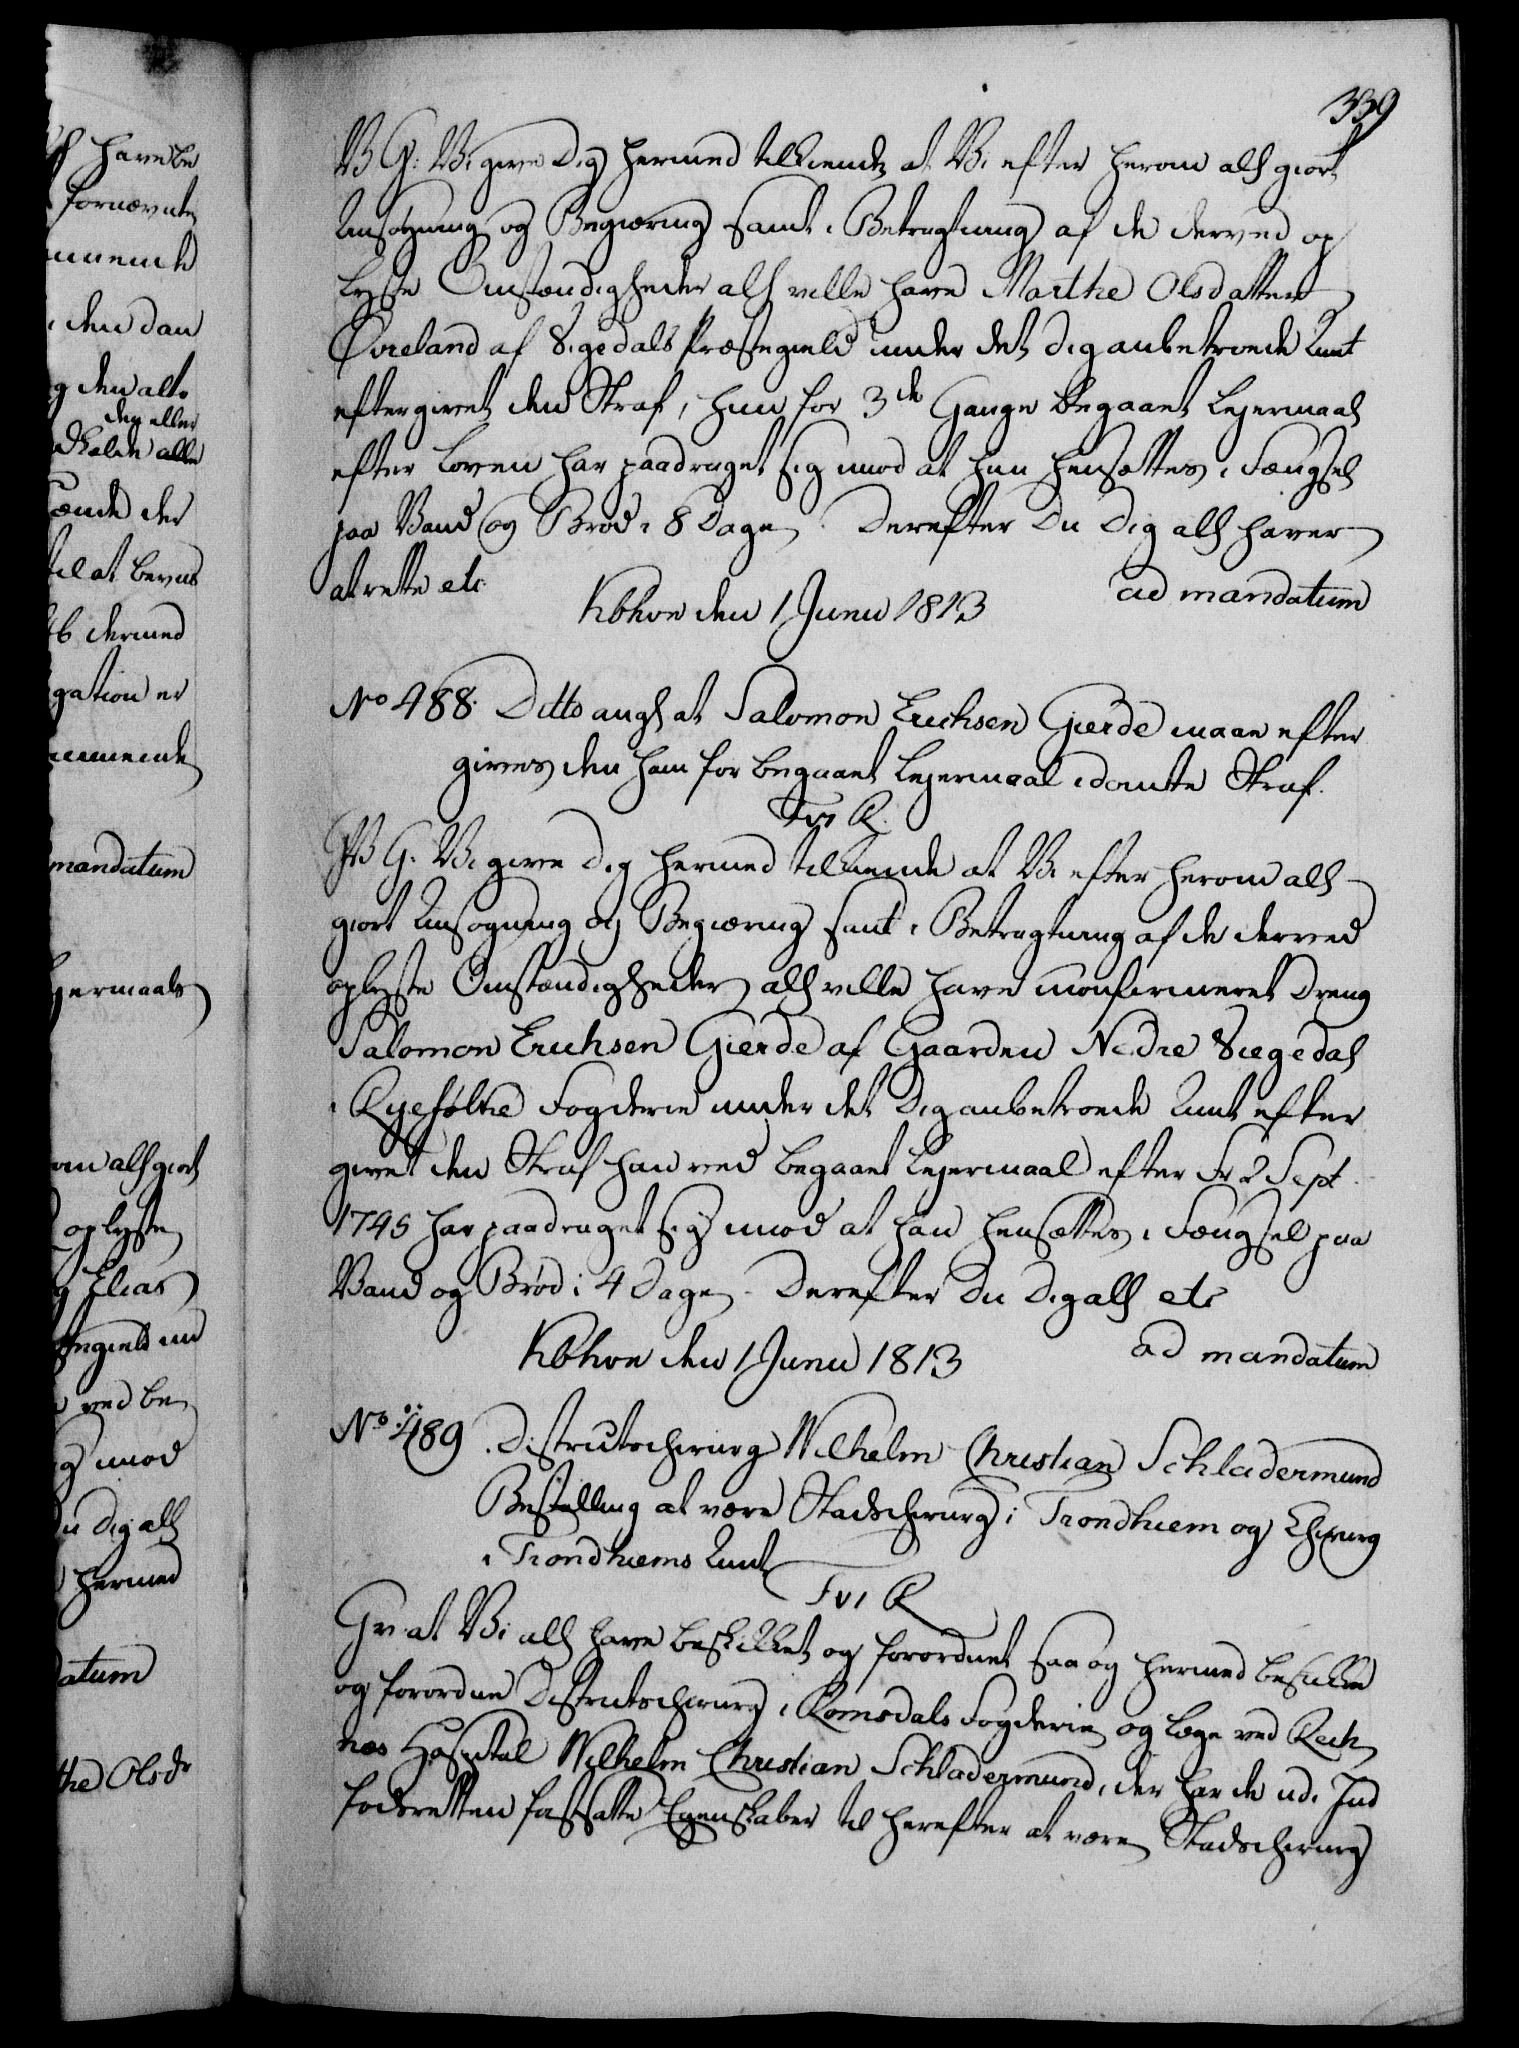 339
V. G: Vi give Dig hermed tilkiende, at Vi efter herom allh giort
Ansøgning og Begiæring samt i Betragtning af de derved op
lyste Omstændigheder allh ville have Marthe Olsdatter
Øvreland af Sigedals Præstegield under det Dig anbetroede Amt
eftergivet den Straf, hun for 3de Gange begaaet Lejermaal
efter Loven har paadraget sig mod at hun hensættes i Fængsel
paa Vand og Brød i 8 Dage. Derefter Du Dig allh haver
at rette etc.
Kbhvn den 1 Junii 1813
ad mandatum
No 488. Ditto angl at Salomon Erichsen Gierde maae efter
gives den ham for begaaet Lejermaal idømte Straf.
Fr: VI R.
V. G. Vi give Dig hermed tilkiende at Vi efter herom allh
giort Ansøgning og Begiæring samt i Betragtning af de derved
oplyste Omstændigheder allh ville have uconfirmeret Dreng
Salomon Erichsen Gierde af Gaarden Nedre Siegedal
i Ryefølke Fogderie under det Dig anbetroede Amt efter
givet den Straf han ved begaaet Lejermaal efter Fr 2 Sept.
1745 har paadraget sig mod at han hensættes i Fængsel paa
Vand og Brød i 4 Dage. Derefter Du Dig allh etc
Kbhvn den 1 Junii 1813
ad mandatum
No 489. Districtschirurg Wilhelm Christian Schladermund
Bestalling at være Stadschirurg i Trondhiem og Chirurg
i Trondhiems Amt
Fr VI R
G. v. at Vi allh have beskikket og forordnet saa og hermed beskikke
og forordne Districtschirurg i Romsdals Fogderie og Læge ved Reck
næs Hospital Wilhelm Christian Schladermund, der har de ud i Ind
fødsretten fastsatte Egenskaber til herefter at være Stadschirurg